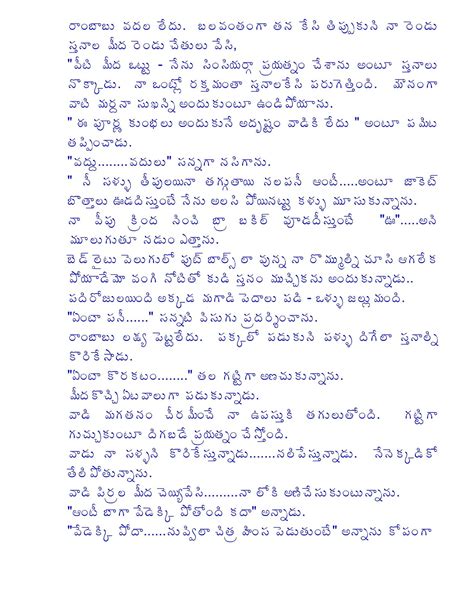 రాంబాబు వదల లేదు. బలవంతంగా తన కేసి తిప్పుకుని నా రెండు
స్తనాల మీద రెండు చేతులు వేసి,
"వీటి మీద ఒట్టు - నేను సిన్సియర్గా ప్రయత్నం చేశాను అంటూ స్తనాలు
నొక్కాడు. నా ఒంట్లో రక్తమంతా స్తనాలకేసి పరుగెత్తింది. మౌనంగా
వాటి మర్దనా సుఖన్ని అందుకుంటూ ఉండిపోయాను.
" ఈ పూర్ణ కుంభలు అందుకునే అదృష్టం వాడికి లేదు " అంటూ పమిట
తప్పించాడు.
"వద్దు........వదులు" సన్నగా నసిగాను.
" నీ సళ్ళు తీపులయినా తగ్గుతాయి నలపనీ ఆంటీ.....అంటూ జాకెట్
బొత్తాలు ఊడదీస్తుంటే నేను అలసి పోయినట్టు కళ్ళు మూసుకున్నాను.
నా వీపు క్రింద నించి బ్రా బకిల్ వూడదీస్తుంటే "ఊ".....అని
మూలుగుతూ నడుం ఎత్తాను.
బెడ్ లైటు వెలుగులో ఫుట్ బాల్స్ లా వున్న నా రొమ్ముల్ని చూసి ఆగలేక
పోయాడేమో వంగి నోటితో కుడి స్తనం ముచ్చికను అందుకున్నాడు..
పదిరోజులయింది అక్కడ మగాడి పెదాలు పడి - ఒళ్ళు జల్లుమంది.
"ఏంటా పనీ......" సన్నటి విసుగు ప్రదర్శించాను.
రాంబాబు లక్ష్య పెట్టలేదు. పక్కలో పడుకుని పళ్ళు దిగేలా స్తనాల్ని
కొరికేసాడు.
"ఏంటా కొరకటం........" తల గట్టిగా అణచుకున్నాను.
మీదకొచ్చి ఏటవాలుగా పడుకున్నాడు.
వాడి మగతనం చీరమీంచే నా ఉపస్తుకి తగులుతోంది. గట్టిగా
గుచ్చుకుంటూ దిగబడే ప్రయత్నం చేస్తోంది.
వాడు నా సళ్ళని కొరికేస్తున్నాడు.......నలిపేస్తున్నాడు. నేనెక్కడికో
తేలిపోతున్నాను.
వాడి పిర్రల మీద చెయ్యివేసి.........నా లోకి అణిచేసుకుంటున్నాను.
"ఆంటీ బాగా వేడెక్కి పోతోంది కదా" అన్నాడు.
"వేడెక్కి పోదా.....నువ్విలా చిత్ర హింస పెడుతుంటే" అన్నాను కోపంగా